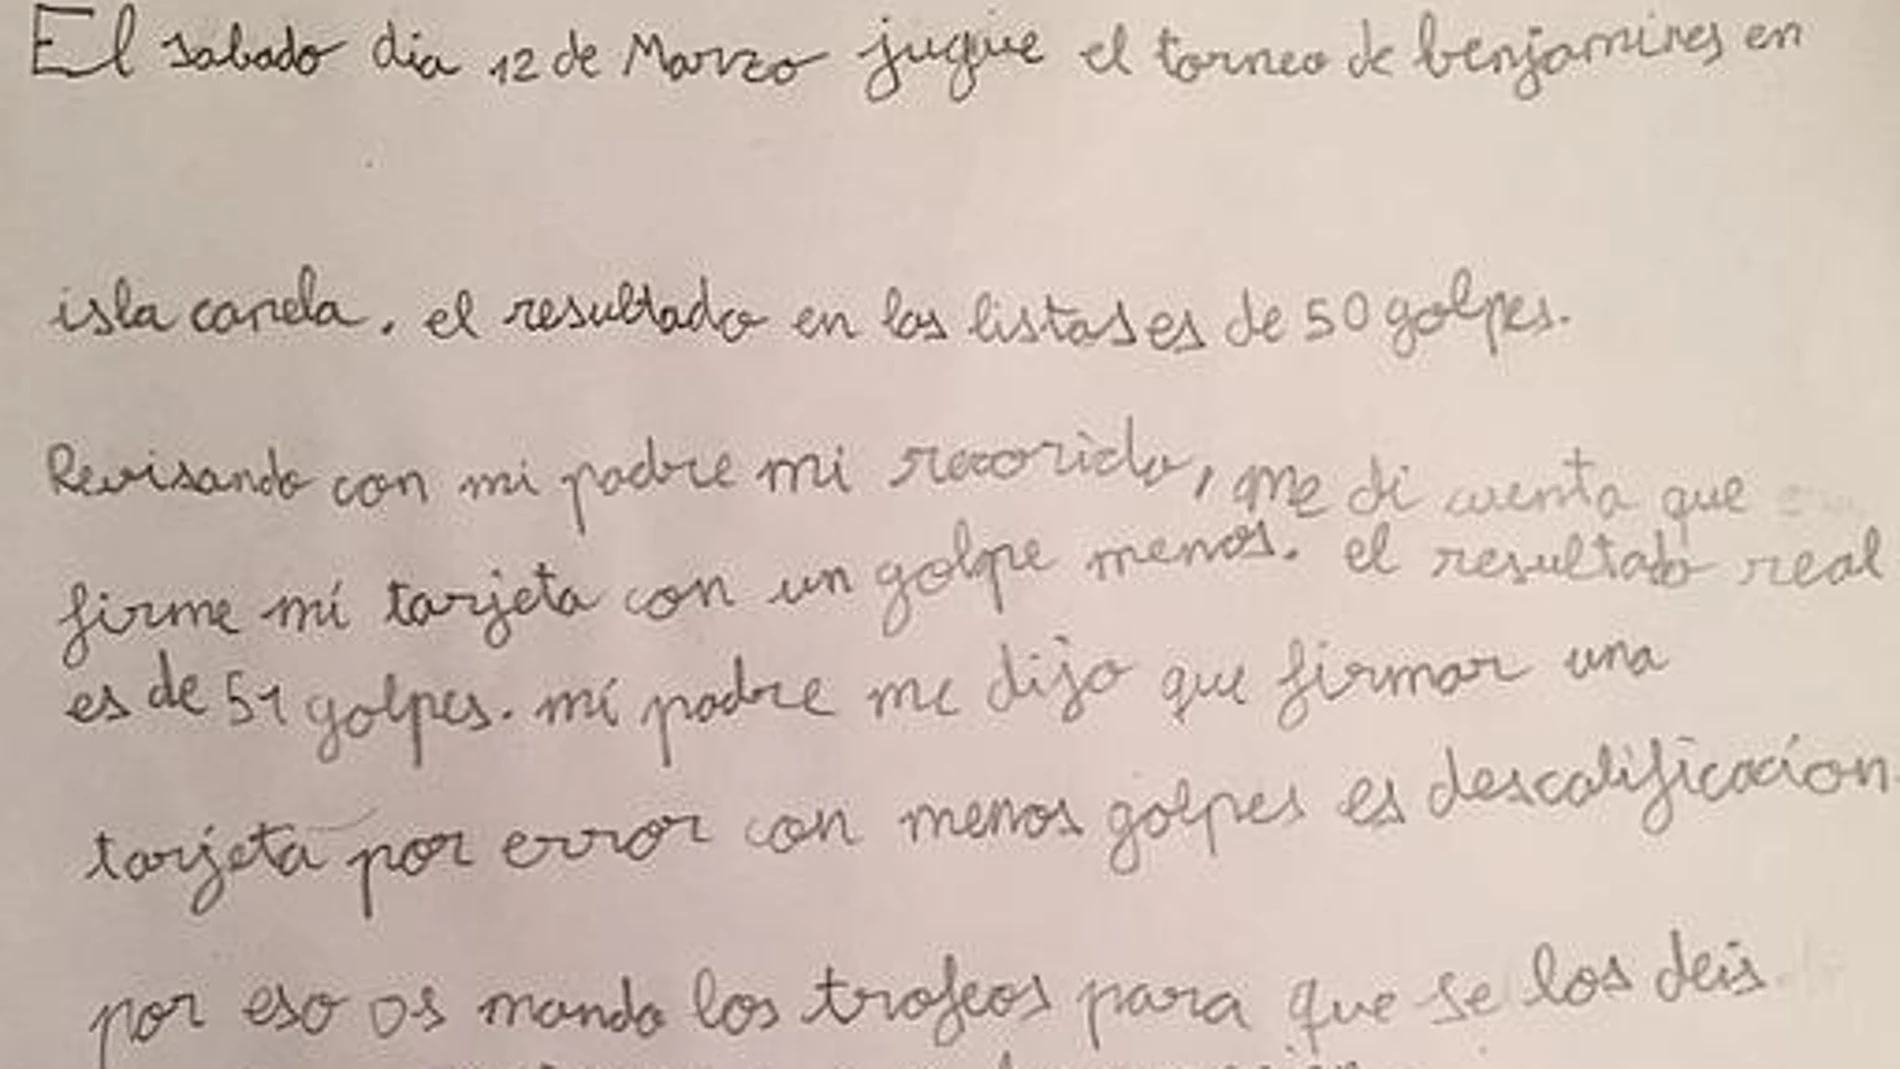 El sabado dia 12 de Marzo jugue el torneo de benjamines en
isla canela. el resultado en las listas es de 50 golpes.
Revisando con mi padre mi recorido, me di cuenta que
firme mi tarjeta con un golpe menos. el resultado real
es de 51 golpes. mi padre me dijo que firmar una
tarjeta por error con menos golpes es descalificacíon
por eso os mando los trofeos para que se los deis